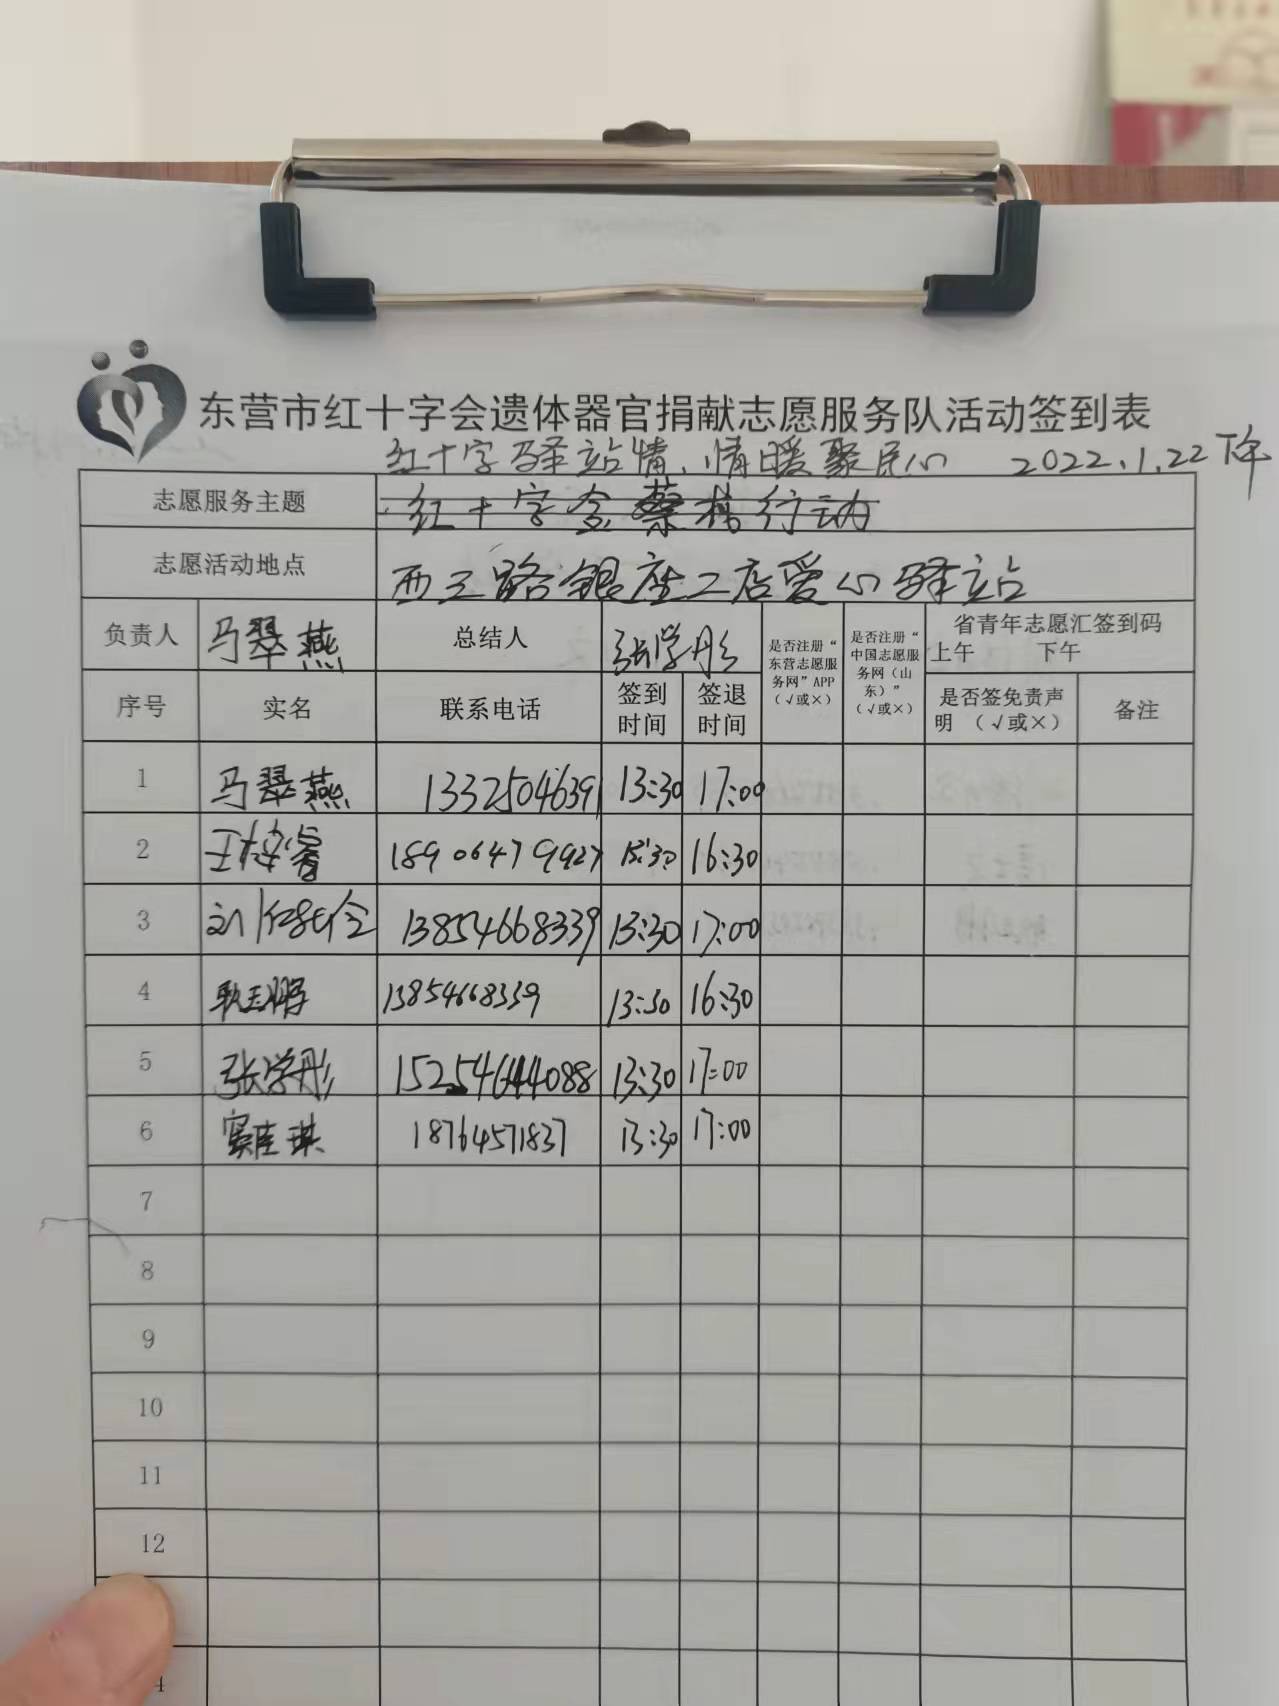 东营市红十字会遗体器官捐献志愿服务队活动签到表
红十字驿站情、情暖聚民心 2022.1.22下午
志愿服务主题 红十字会 行动
志愿活动地点 西三路银座二店爱心驿站
负责人 马翠燕 总结人 张学彤 是否注册“东营志愿服务网”APP（√或×） 是否注册“中国志愿服务网（山东）”（√或×） 省青年志愿汇签到码 上午 下午
序号 实名 联系电话 签到时间 签退时间 是否签免责声明（√或×） 备注
1 马翠燕 13325046391 13:30 17:00
2 王梓睿 18906479927 13:30 16:30
3 刘 13854668339 13:30 17:00
4 耿玉鹏 13854668339 13:30 16:30
5 张学彤 15254644088 13:30 17:00
6 窦佳琪 18764571837 13:30 17:00
7
8
9
10
11
12
4